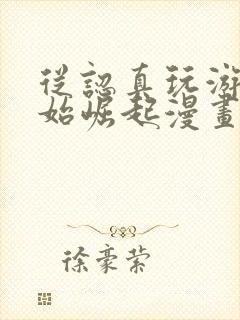 從認真玩游
始崛起漫畫
徐豪縈